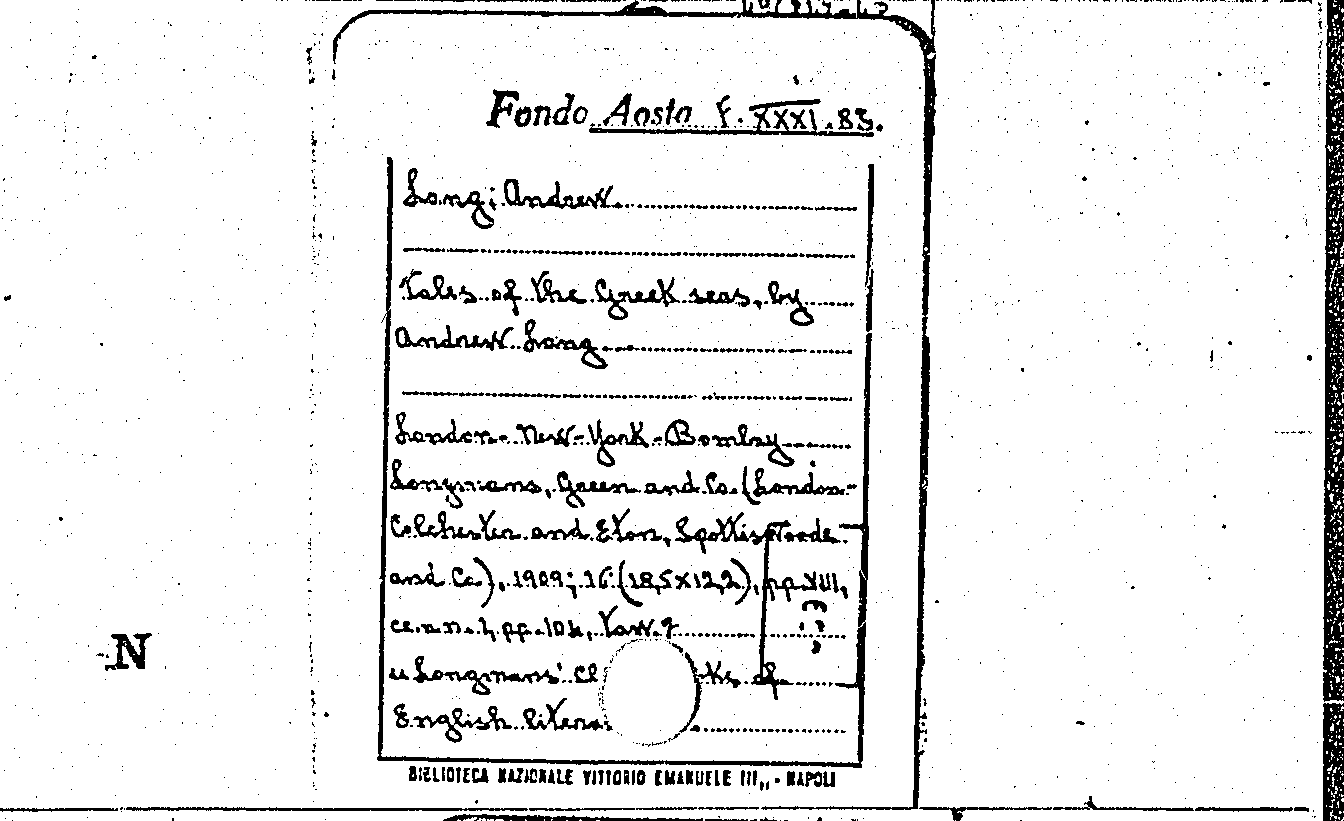 Fondo Aosta F. XXXI. 83.
Lang, Andrew
Tales of the Greek seas, by
Andrew Lang
London - New-York - Bombay
Longmans, Green and Co. (London -
Colchester and Eton, Spottiswoode
and Co.), 1909; 16° (18,5×12,2), pp. VIII,
tavv.
"Longmans' of
English
N
BIBLIOTECA NAZIONALE VITTORIO EMANUELE III,, - NAPOLI